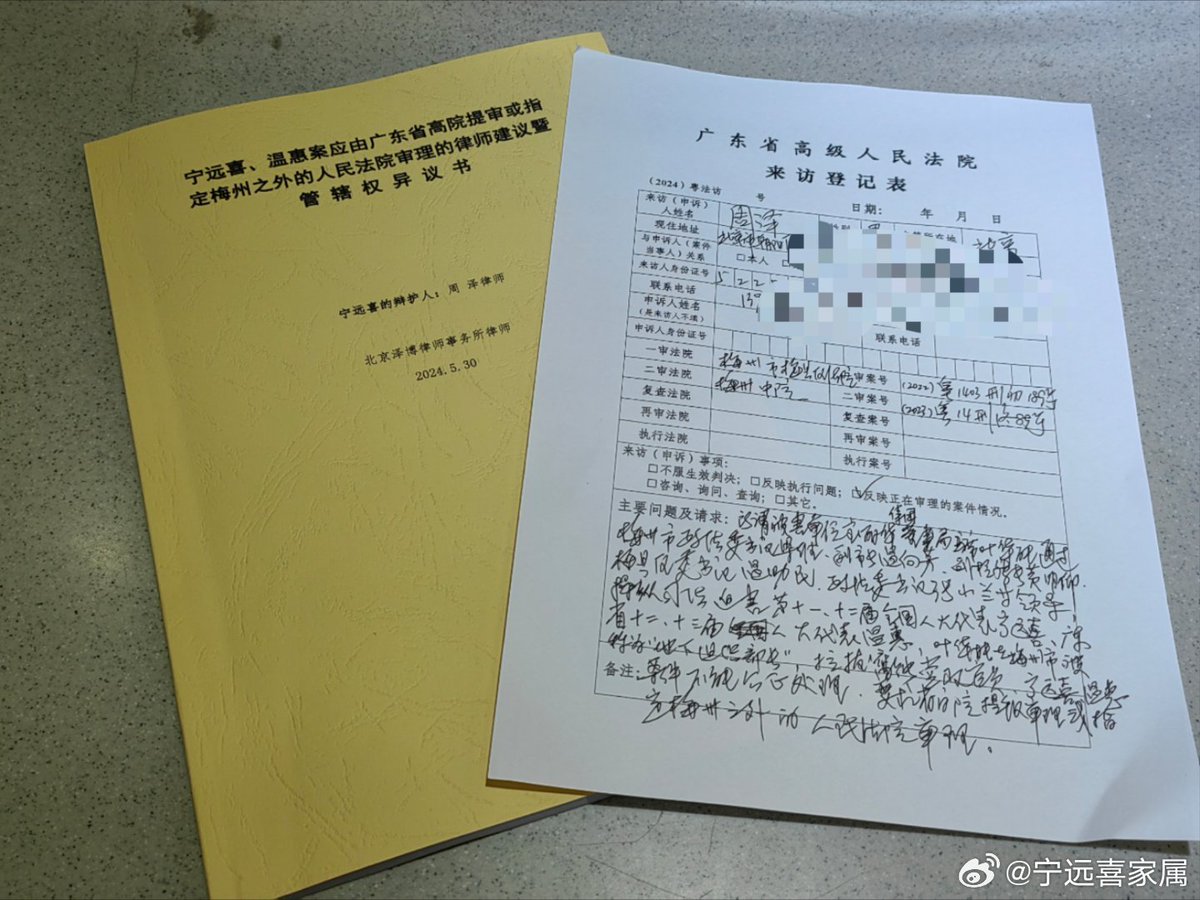 宁远喜、温惠案应由广东省高院提审或指
定梅州之外的人民法院审理的律师建议暨
管辖权异议书
宁远喜的辩护人：周 泽律师
北京泽博律师事务所律师
2024.5.30
广东省高级人民法院
来访登记表
（2024）粤法访 号
日期： 年 月 日
来访（申诉）
人姓名
周泽
现住地址
北京市朝阳
北京
与申诉人（案件
当事人）关系
□本人
来访人身份证号
522
联系电话
申诉人姓名
（是来访人不填）
申诉人身份证号
联系电话
一审法院
梅州市梅县区法院
一审案号
（2022）粤1403刑初189号
二审法院
梅州中院
二审案号
（2023）粤14刑终
复查法院
复查案号
再审法院
再审案号
执行法院
执行案号
来访（申诉）事项：
□不服生效判决；□反映执行问题；☑反映正在审理的案件情况。
□咨询、询问、查询；□其它。
主要问题及请求：
所谓被害单位宝丽华集团董事局主席叶华能通过
梅州市政法委书记
副市长温向芳
梅县区委书记
政法委书记张小兰等领导
操纵司法迫害第十一、十二届全国人大代表宁远喜、广东
省十二、十三届人大代表温惠，叶华能在梅州市被
称为“地下组织部长”，拉拢腐蚀党政官员，宁远喜温惠
备注：
案件不能公正处理，要求省高院提级审理或指
定梅州之外的人民法院审理。
@宁远喜家属